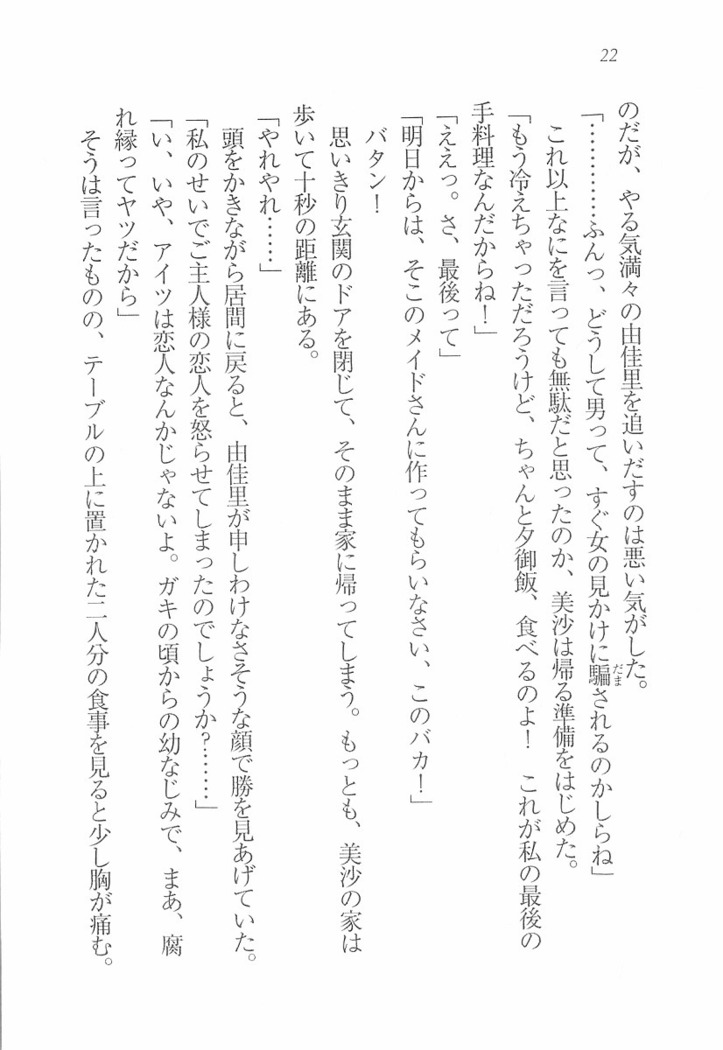 22
のだが、やる気満々の由佳里を追いだすのは悪い気がした。
「…………ふんっ、どうして男って、すぐ女の見かけに騙されるのかしらね」
だま
これ以上なにを言っても無駄だと思ったのか、美沙は帰る準備をはじめた。
「もう冷えちゃっただろうけど、ちゃんと夕御飯、食べるのよ！　これが私の最後の
手料理なんだからね！」
「ええっ。さ、最後って」
「明日からは、そこのメイドさんに作ってもらいなさい、このバカ！」
バタン！
思いきり玄関のドアを閉じて、そのまま家に帰ってしまう。もっとも、美沙の家は
歩いて十秒の距離にある。
「やれやれ……」
頭をかきながら居間に戻ると、由佳里が申しわけなさそうな顔で勝を見あげていた。
「私のせいでご主人様の恋人を怒らせてしまったのでしょうか？………」
「い、いや、アイツは恋人なんかじゃないよ。ガキの頃からの幼なじみで、まあ、腐
れ縁ってヤツだから」
そうは言ったものの、テーブルの上に置かれた二人分の食事を見ると少し胸が痛む。